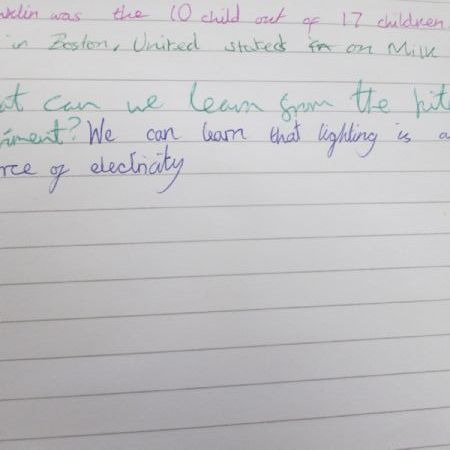 nklin was the 10 child out of 17 children
in Boston, United stated in on Milk
at can we learn from the kite
riment? We can learn that lighting is a
rce of electricity